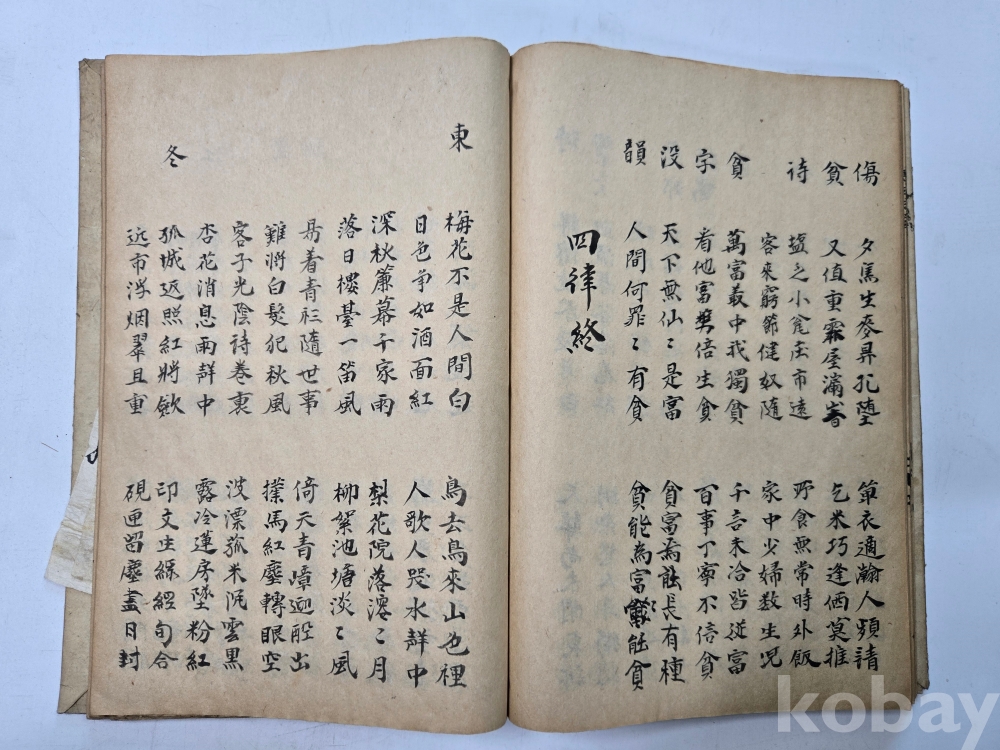 傷 夕馬生麥 孔墮 單衣適瀚人頻請
貧 又值重霖屋滿 乞米巧逢価莫推
詩 塩乏小瓮庄市遠 野食無常時外飯
客來窮節健奴隨 家中少婦数生児
貧 萬富叢中我獨貧 千言未洽皆從富
字 看他富樊倍生貧 百事丁寧不信貧
没 天下無仙〻是富 貧富焉能長有種
韻 人間何罪〻有貧 貧能為富 能貧
四律終
東 梅花不是人間白 鳥去鳥來山也裡
日色争如酒面紅 人歌人哭水聲中
深秋簾幕千家雨 梨花院落溶〻月
落日樓臺一笛風 柳絮池塘淡〻風
易着青衫隨世事 倚天青嶂迎船出
難將白髮犯秋風 撲馬紅塵轉眼空
客子光陰詩卷裏 波漂菰米沉雲黒
杏花消息雨聲中 露冷蓮房墜粉紅
冬 孤城返照紅將斂 印文生綠經旬合
远市浮烟翠且重 硯匣留塵盡日封
kobay